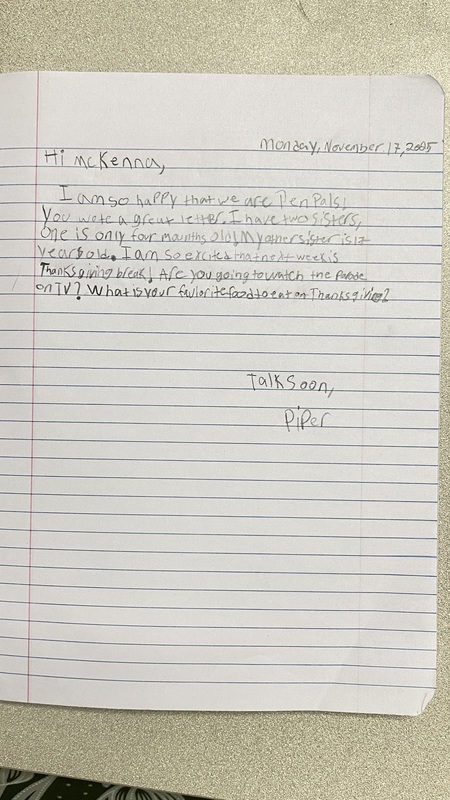 Monday, November 17, 2025
Hi McKenna,
I am so happy that we are Pen Pals!
You wote a great letter. I have two sisters,
One is only four mounths old! My other sister is 17
years old. I am so excited that next week is
Thanksgiving break! Are you going to watch the Parade
on TV? What is your faviorite food to eat on Thanksgiving?
Talk Soon,
Piper